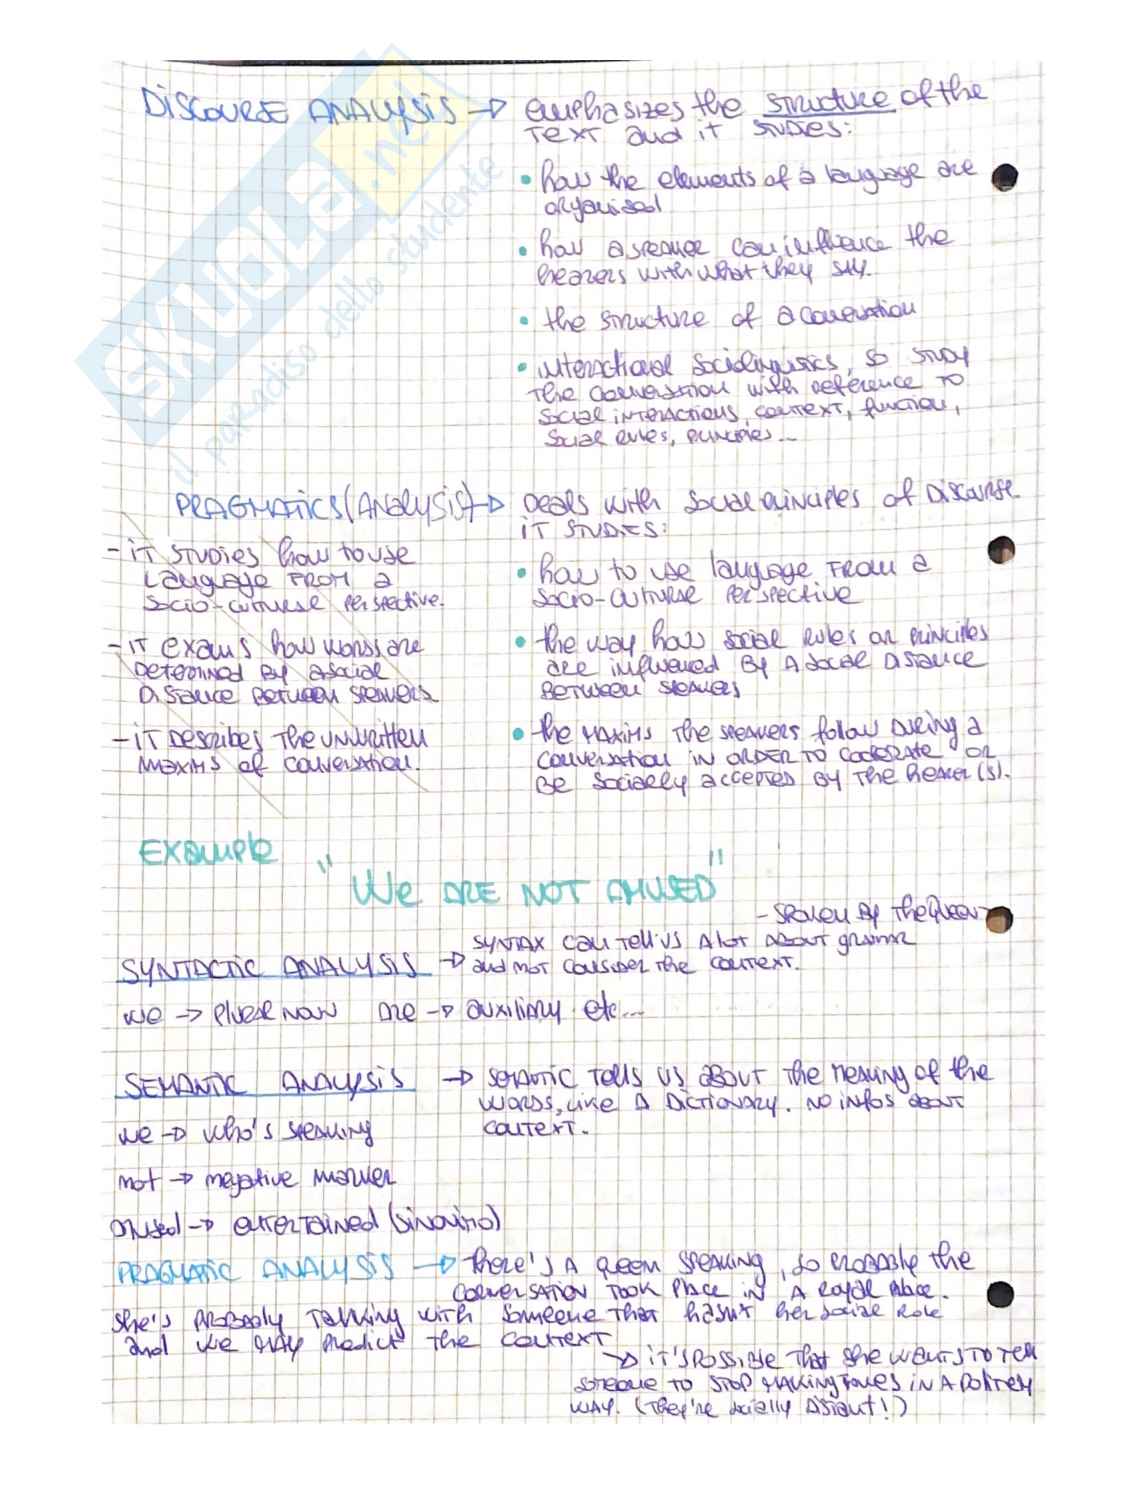 DISCOURSE ANALYSIS → emphasizes the structure of the
TEXT and it STUDIES:
• how the elements of a language are
organised
• how a speaker can influence the
hearers with what they say.
• the structure of a conversation
• interactional sociolinguistics, so study
the conversation with reference to
social interactions, context, function,
social rules, principles...
PRAGMATICS (ANALYSIS) → Deals with social principles of Discourse
IT STUDIES:
• how to use language FROM a
socio-cultural perspective
• the way how social rules or principles
are influenced By A social Distance
Between speakers
• the MAXIMS the speakers follow during a
conversation in order to cooperate or
Be socially accepted by the hearer(s).
- it studies how to use
language FROM a
socio-cultural perspective.
- it exams how words are
Determined by a social
Distance Between speakers
- it Describes the unwritten
maxims of conversation.
Example
"We ARE NOT AMUSED"
- spoken by the Queen
SYNTACTIC ANALYSIS → SYNTAX can tell us A lot about grammar
and not consider the context.
we → plural noun are → auxiliary etc...
SEMANTIC ANALYSIS → semantic tells us about the meaning of the
words, like A Dictionary. No infos about
context.
we → who's speaking
not → negative marker
amused → entertained (sinonimo)
PRAGMATIC ANALYSIS → there's A queen speaking, so probably the
conversation took place in A royal place.
she's probably talking with someone that hasn't her social role
and we may predict the context
→ it's possible that she wants to tell
someone to stop making in A
way. (They're socially distant!)
SKUOLA.net
il paradiso dello studente